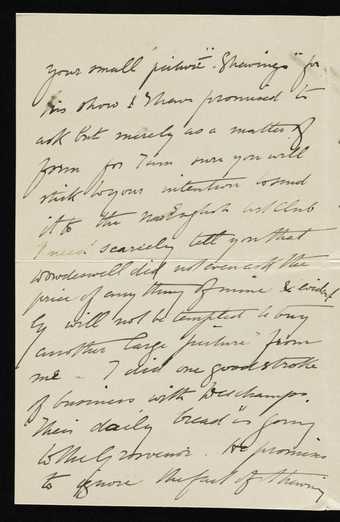 your small picture "Shavings" for
his show & I have promised to
ask but merely as a matter of
form for I am sure you will
stick to your intention to send
it to the new English art club
I need scarcely tell you that
Dowdeswell did not even ask the
price of anything of mine & evident
ly will not be tempted to buy
another large "picture" from
me — I did one good stroke
of business with Deschamps.
"Their daily bread" is going
to the Grosvenor. He promises
to ignore the fact of